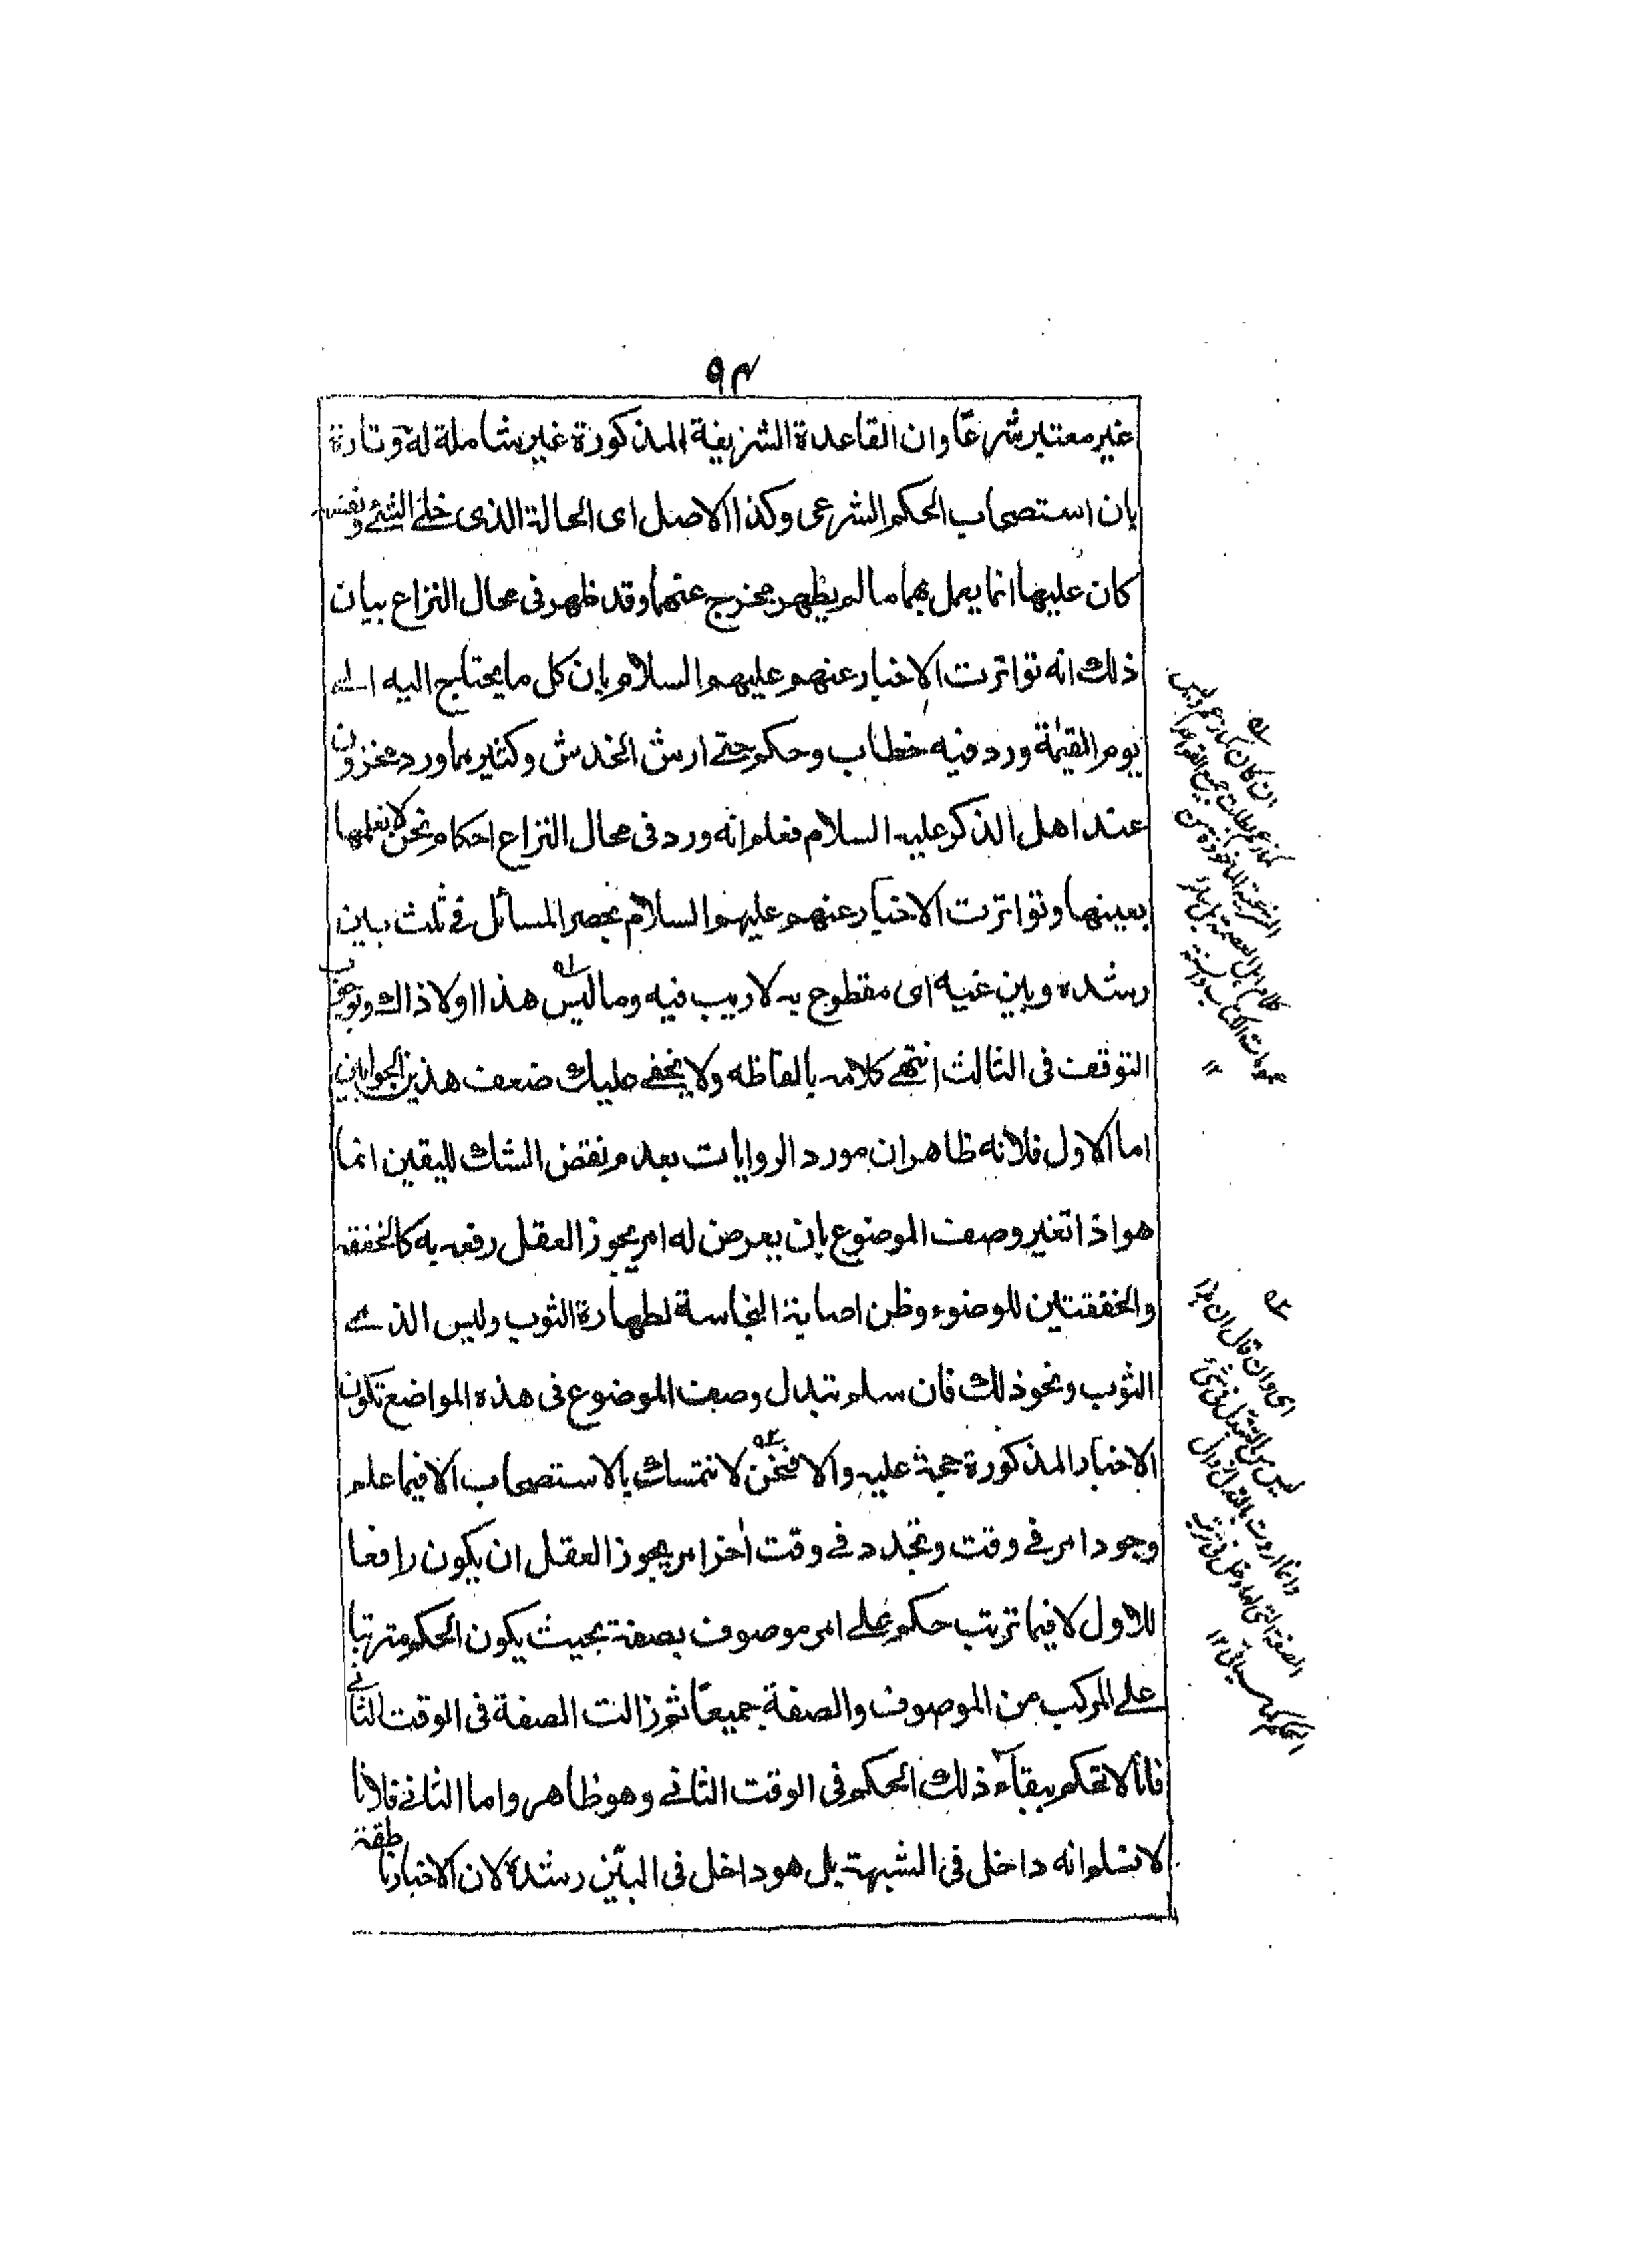 ٩٤
غير معتبر شرعًا وان القاعدة الشريفة المذكورة غير شاملة له وتارة
بان استصحاب الحكم الشرعى وكذا الاصل اى الحالة الذى خلى الشئ ونفسه
كان عليها انما يعمل بهما مالم يظهر مخرج عنهما وقد ظهر فى محال النزاع بيان
ذلك انه تواترت الاخبار عنهم عليهم السلام بان كل ما يحتاج اليه الى
يوم القيمة ورد فيه خطاب وحكم حتى ارش الخدش وكثير مما ورد مخزون
عند اهل الذكر عليه السلام فعلم انه ورد فى محال النزاع احكام نحن لا نعلمها
بعينها وتواترت الاخبار عنهم عليهم السلام بحصر المسائل فى ثلث بين
رشده وبين غيه اى مقطوع به لا ريب فيه وما ليس هذا اولا ذاك ووجوب
التوقف فى الثالث انتهى كلامه بالفاظه ولا يخفى عليك ضعف هذين الجوابين
اما الاول فلانه ظاهر ان مورد الروايات بعدم نقض الشك لليقين انما
هو اذا تغير وصف الموضوع بان يعرض له امر يجوز العقل رفعه به كالخفقة
والخفقتين للوضوء وظن اصابة النجاسة لطهارة الثوب وليس الذى
الثوب ونحو ذلك فان سلم تبدل وصف الموضوع فى هذه المواضع تكون
الاخبار المذكورة حجة عليه والا فنحن لا نتمسك بالاستصحاب الا فيما علم
وجود امر فى وقت وتجدد فى وقت اخر امر يجوز العقل ان يكون رافعا
للاول لا فيما ترتب حكم على امر موصوف بصفة بحيث يكون الحكم مترتبا
على المركب من الموصوف والصفة جميعًا ثم زالت الصفة فى الوقت الثانى
فانا لا نحكم ببقاء ذلك الحكم فى الوقت الثانى وهو ظاهر واما الثانى فلانا
لا نسلم انه داخل فى الشبهة بل هو داخل فى البيّن رشدة لان الاخبار ناطقة
اى وان قال ان هذا
ليس من التبدل فى شئ